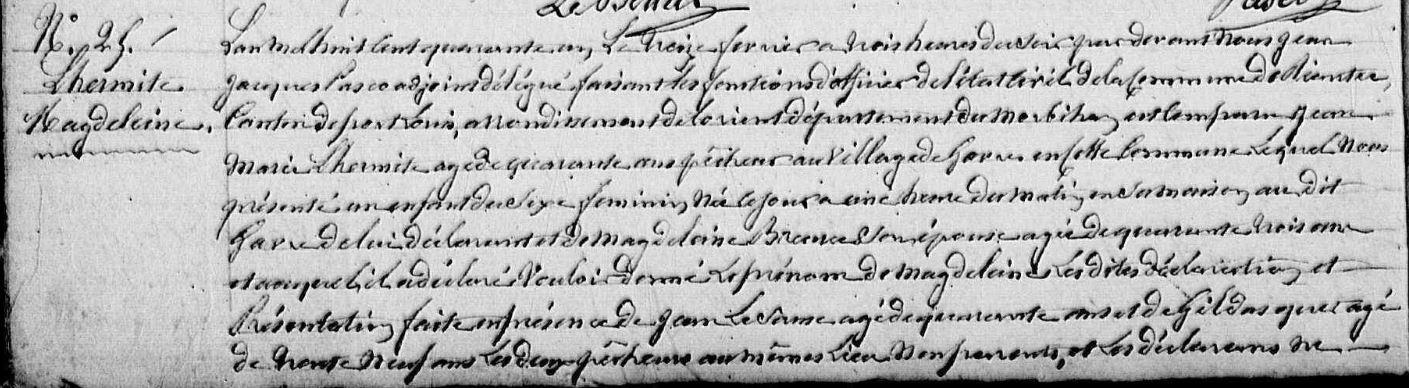 N.º 25.
Lhermite
Magdeleine.
L'an mil huit cent quarante un, Le treize fevrier a trois heures du soir, par devant Nous Jean
Jacques Pasco adjoint délégué faisant les fonctions d'officier de l'état civil de la Commune de Riantec,
Canton de port Louis, arrondissement de lorient département du Morbihan, est Comparu Jean
Marie Lhermite agé de quarante ans pêcheur au Village de Gavre en cette Commune Lequel Nous
présenté un enfant du Sexe féminin, Née ce jour a une heure du matin, en sa maison, au dit
Gavre de lui déclarant et de Magdeleine Son épouse agée de quarante trois ans
et auquel il a déclaré Vouloir donné Le prénom de Magdeleine Les dites déclaration, et
Présentation, faite en présence de Jean agé de quarante ans et de Gildas agé
de trente Neuf ans Les deux pêcheurs au mêmes Lieu Non parents, et Les déclarans ne